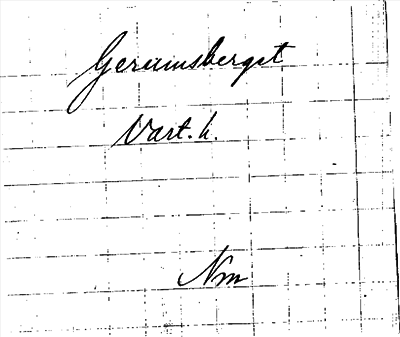 Gerumsberget
Vart. h.
Nm